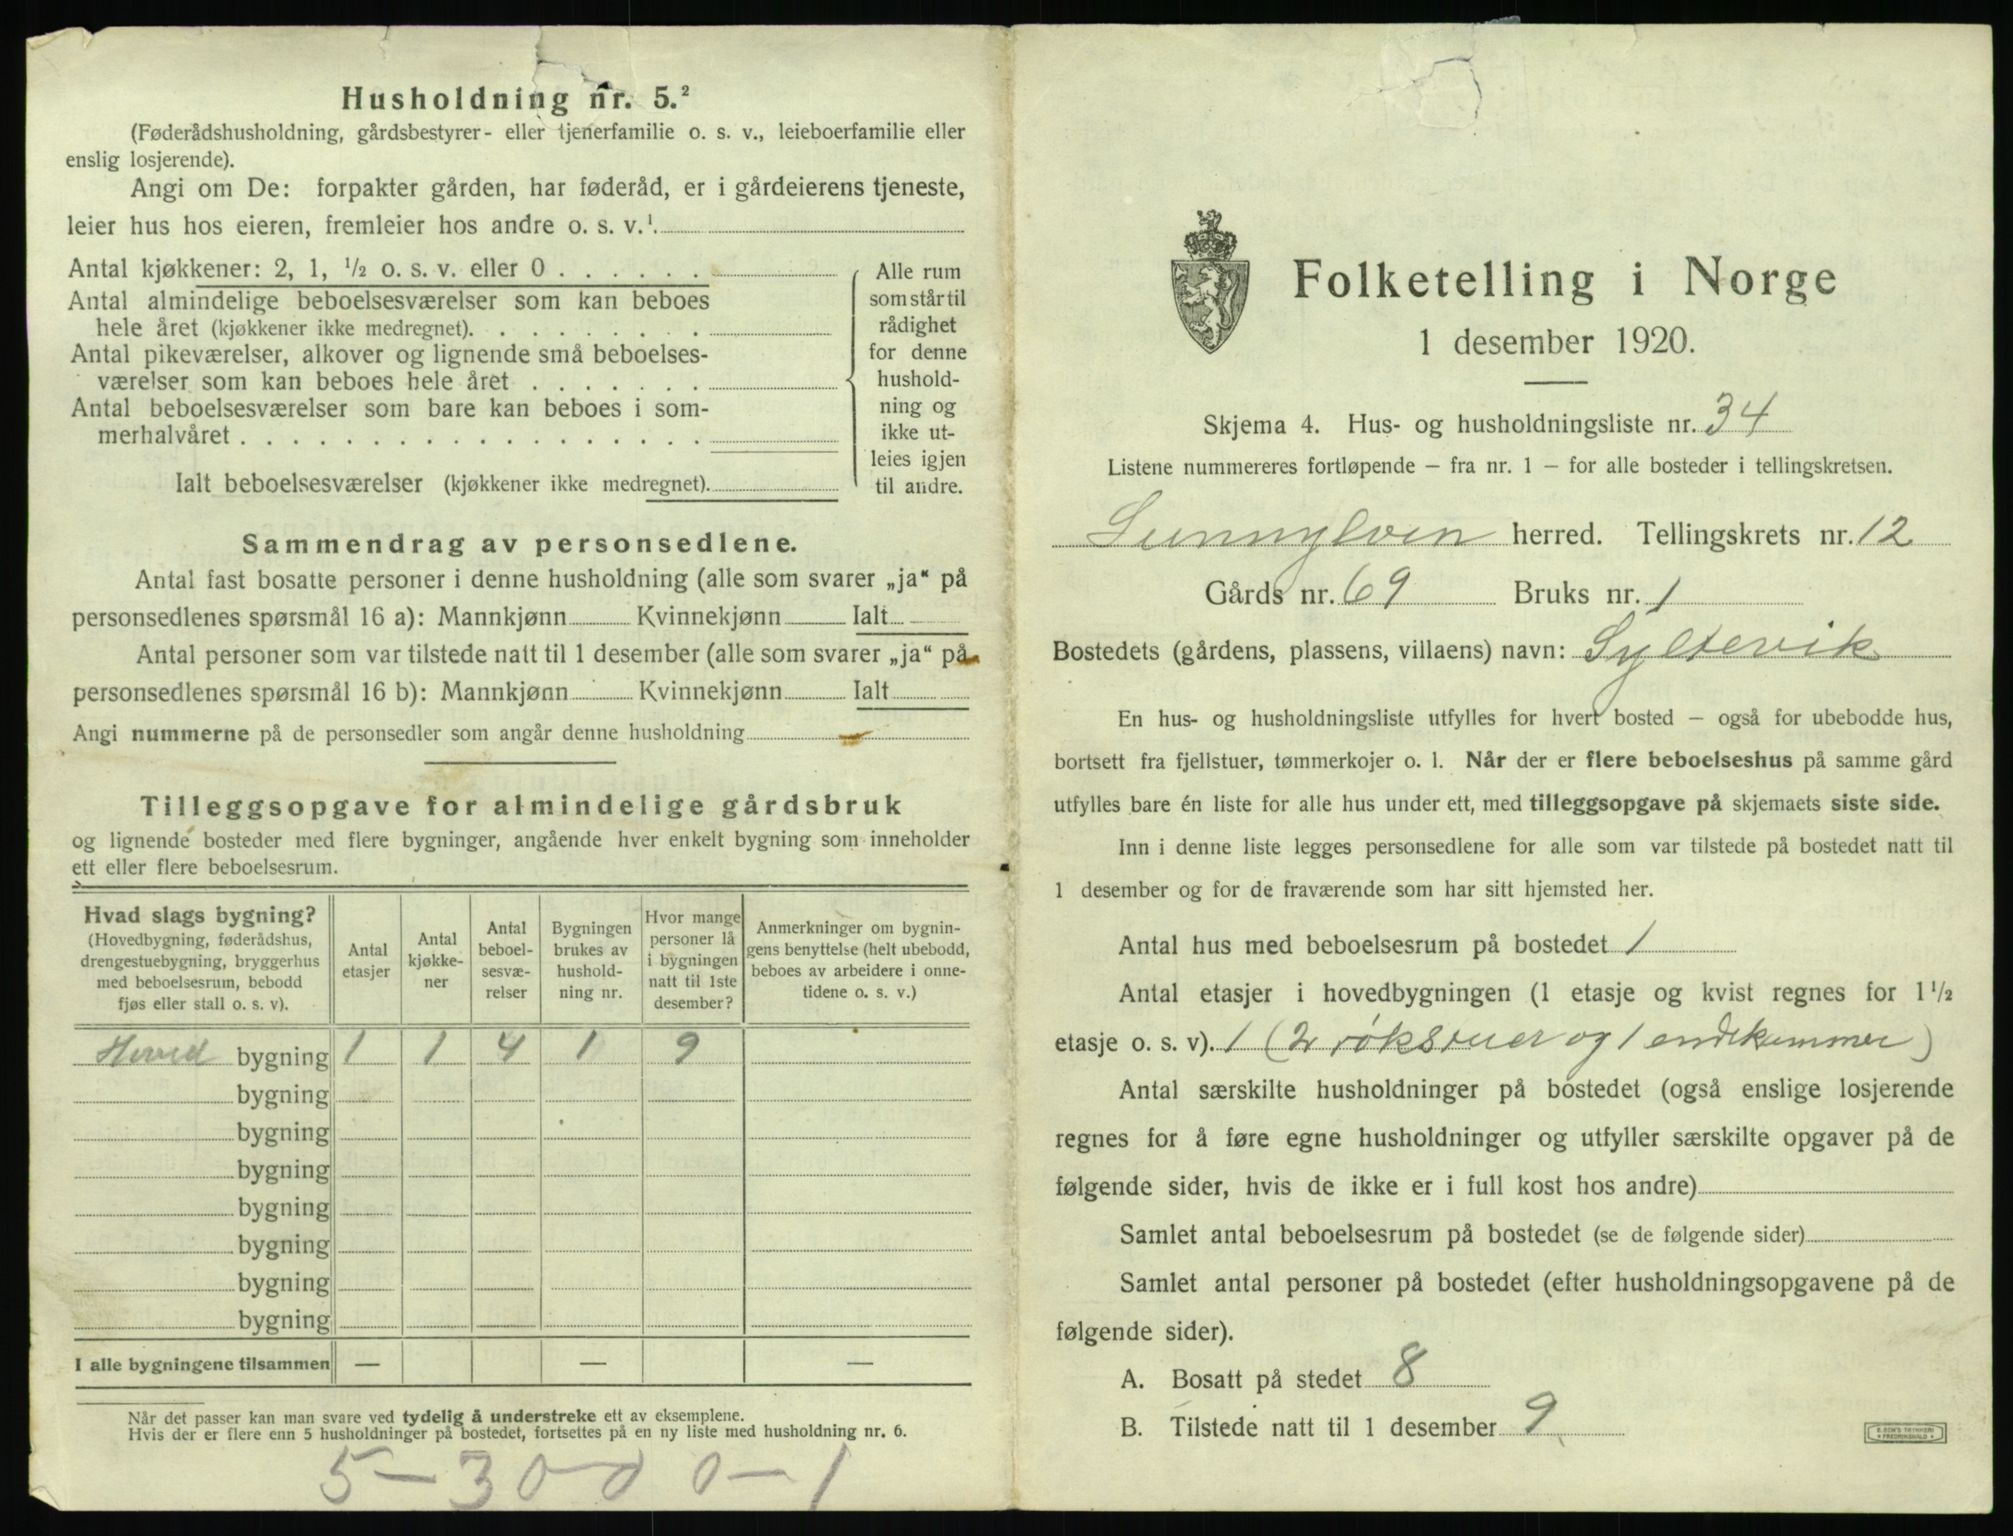 Husholdning nr. 5.²
(Føderådshusholdning, gårdsbestyrer- eller tjenerfamilie o. s. v., leieboerfamilie eller
enslig losjerende).
Angi om De: forpakter gården, har føderåd, er i gårdeierens tjeneste,
leier hus hos eieren, fremleier hos andre o. s. v.¹.
Antal kjøkkener: 2, 1, ½ o. s. v. eller 0 . . . . . .
Antal almindelige beboelsesværelser som kan beboes
hele året (kjøkkener ikke medregnet). . . . . . . . .
Antal pikeværelser, alkover og lignende små beboelses-
værelser som kan beboes hele året . . . . . . .
Antal beboelsesværelser som bare kan beboes i som-
merhalvåret . . . . . . . . . . . . . . . . . .
Ialt beboelsesværelser (kjøkkener ikke medregnet).
Alle rum
som står til
rådighet
for denne
hushold-
ning og
ikke ut-
leies igjen
til andre.
Sammendrag av personsedlene.
Antal fast bosatte personer i denne husholdning (alle som svarer „ja“ på
personsedlenes spørsmål 16 a): Mannkjønn Kvinnekjønn Ialt
Antal personer som var tilstede natt til 1 desember (alle som svarer „ja“ på
personsedlenes spørsmål 16 b): Mannkjønn Kvinnekjønn Ialt
Angi nummerne på de personsedler som angår denne husholdning
Tilleggsopgave for almindelige gårdsbruk
og lignende bosteder med flere bygninger, angående hver enkelt bygning som inneholder
ett eller flere beboelsesrum.
Hvad slags bygning?
(Hovedbygning, føderådshus,
drengestuebygning, bryggerhus
med beboelsesrum, bebodd
fjøs eller stall o. s. v).
Antal
etasjer
Antal
kjøkke-
ner
Antal
beboel-
sesvæ-
relser
Bygningen
brukes av
hushold-
ning nr.
Hvor mange
personer lå
i bygningen
natt til 1ste
desember?
Anmerkninger om bygnin-
gens benyttelse (helt ubebodd,
beboes av arbeidere i onne-
tidene o. s. v.)
Hoved bygning 1 1 4 1 9
bygning
bygning
bygning
bygning
bygning
bygning
bygning
I alle bygningene tilsammen — — —
Når det passer kan man svare ved tydelig å understreke ett av eksemplene.
Hvis der er flere enn 5 husholdninger på bostedet, fortsettes på en ny liste med husholdning nr. 6.
5-300 0-1
Folketelling i Norge
1 desember 1920.
Skjema 4. Hus- og husholdningsliste nr. 34
Listene nummereres fortløpende — fra nr. 1 — for alle bosteder i tellingskretsen.
Sunnylven herred. Tellingskrets nr. 12
Gårds nr. 69 Bruks nr. 1
Bostedets (gårdens, plassens, villaens) navn: Syltevik
En hus- og husholdningsliste utfylles for hvert bosted — også for ubebodde hus,
bortsett fra fjellstuer, tømmerkojer o. l. Når der er flere beboelseshus på samme gård
utfylles bare én liste for alle hus under ett, med tilleggsopgave på skjemaets siste side.
Inn i denne liste legges personsedlene for alle som var tilstede på bostedet natt til
1 desember og for de fraværende som har sitt hjemsted her.
Antal hus med beboelsesrum på bostedet 1
Antal etasjer i hovedbygningen (1 etasje og kvist regnes for 1½
etasje o. s. v). 1 (2 røkstuer og 1 endekammer)
Antal særskilte husholdninger på bostedet (også enslige losjerende
regnes for å føre egne husholdninger og utfyller særskilte opgaver på de
følgende sider, hvis de ikke er i full kost hos andre)
Samlet antal beboelsesrum på bostedet (se de følgende sider)
Samlet antal personer på bostedet (efter husholdningsopgavene på de
følgende sider).
A. Bosatt på stedet 8
B. Tilstede natt til 1 desember 9